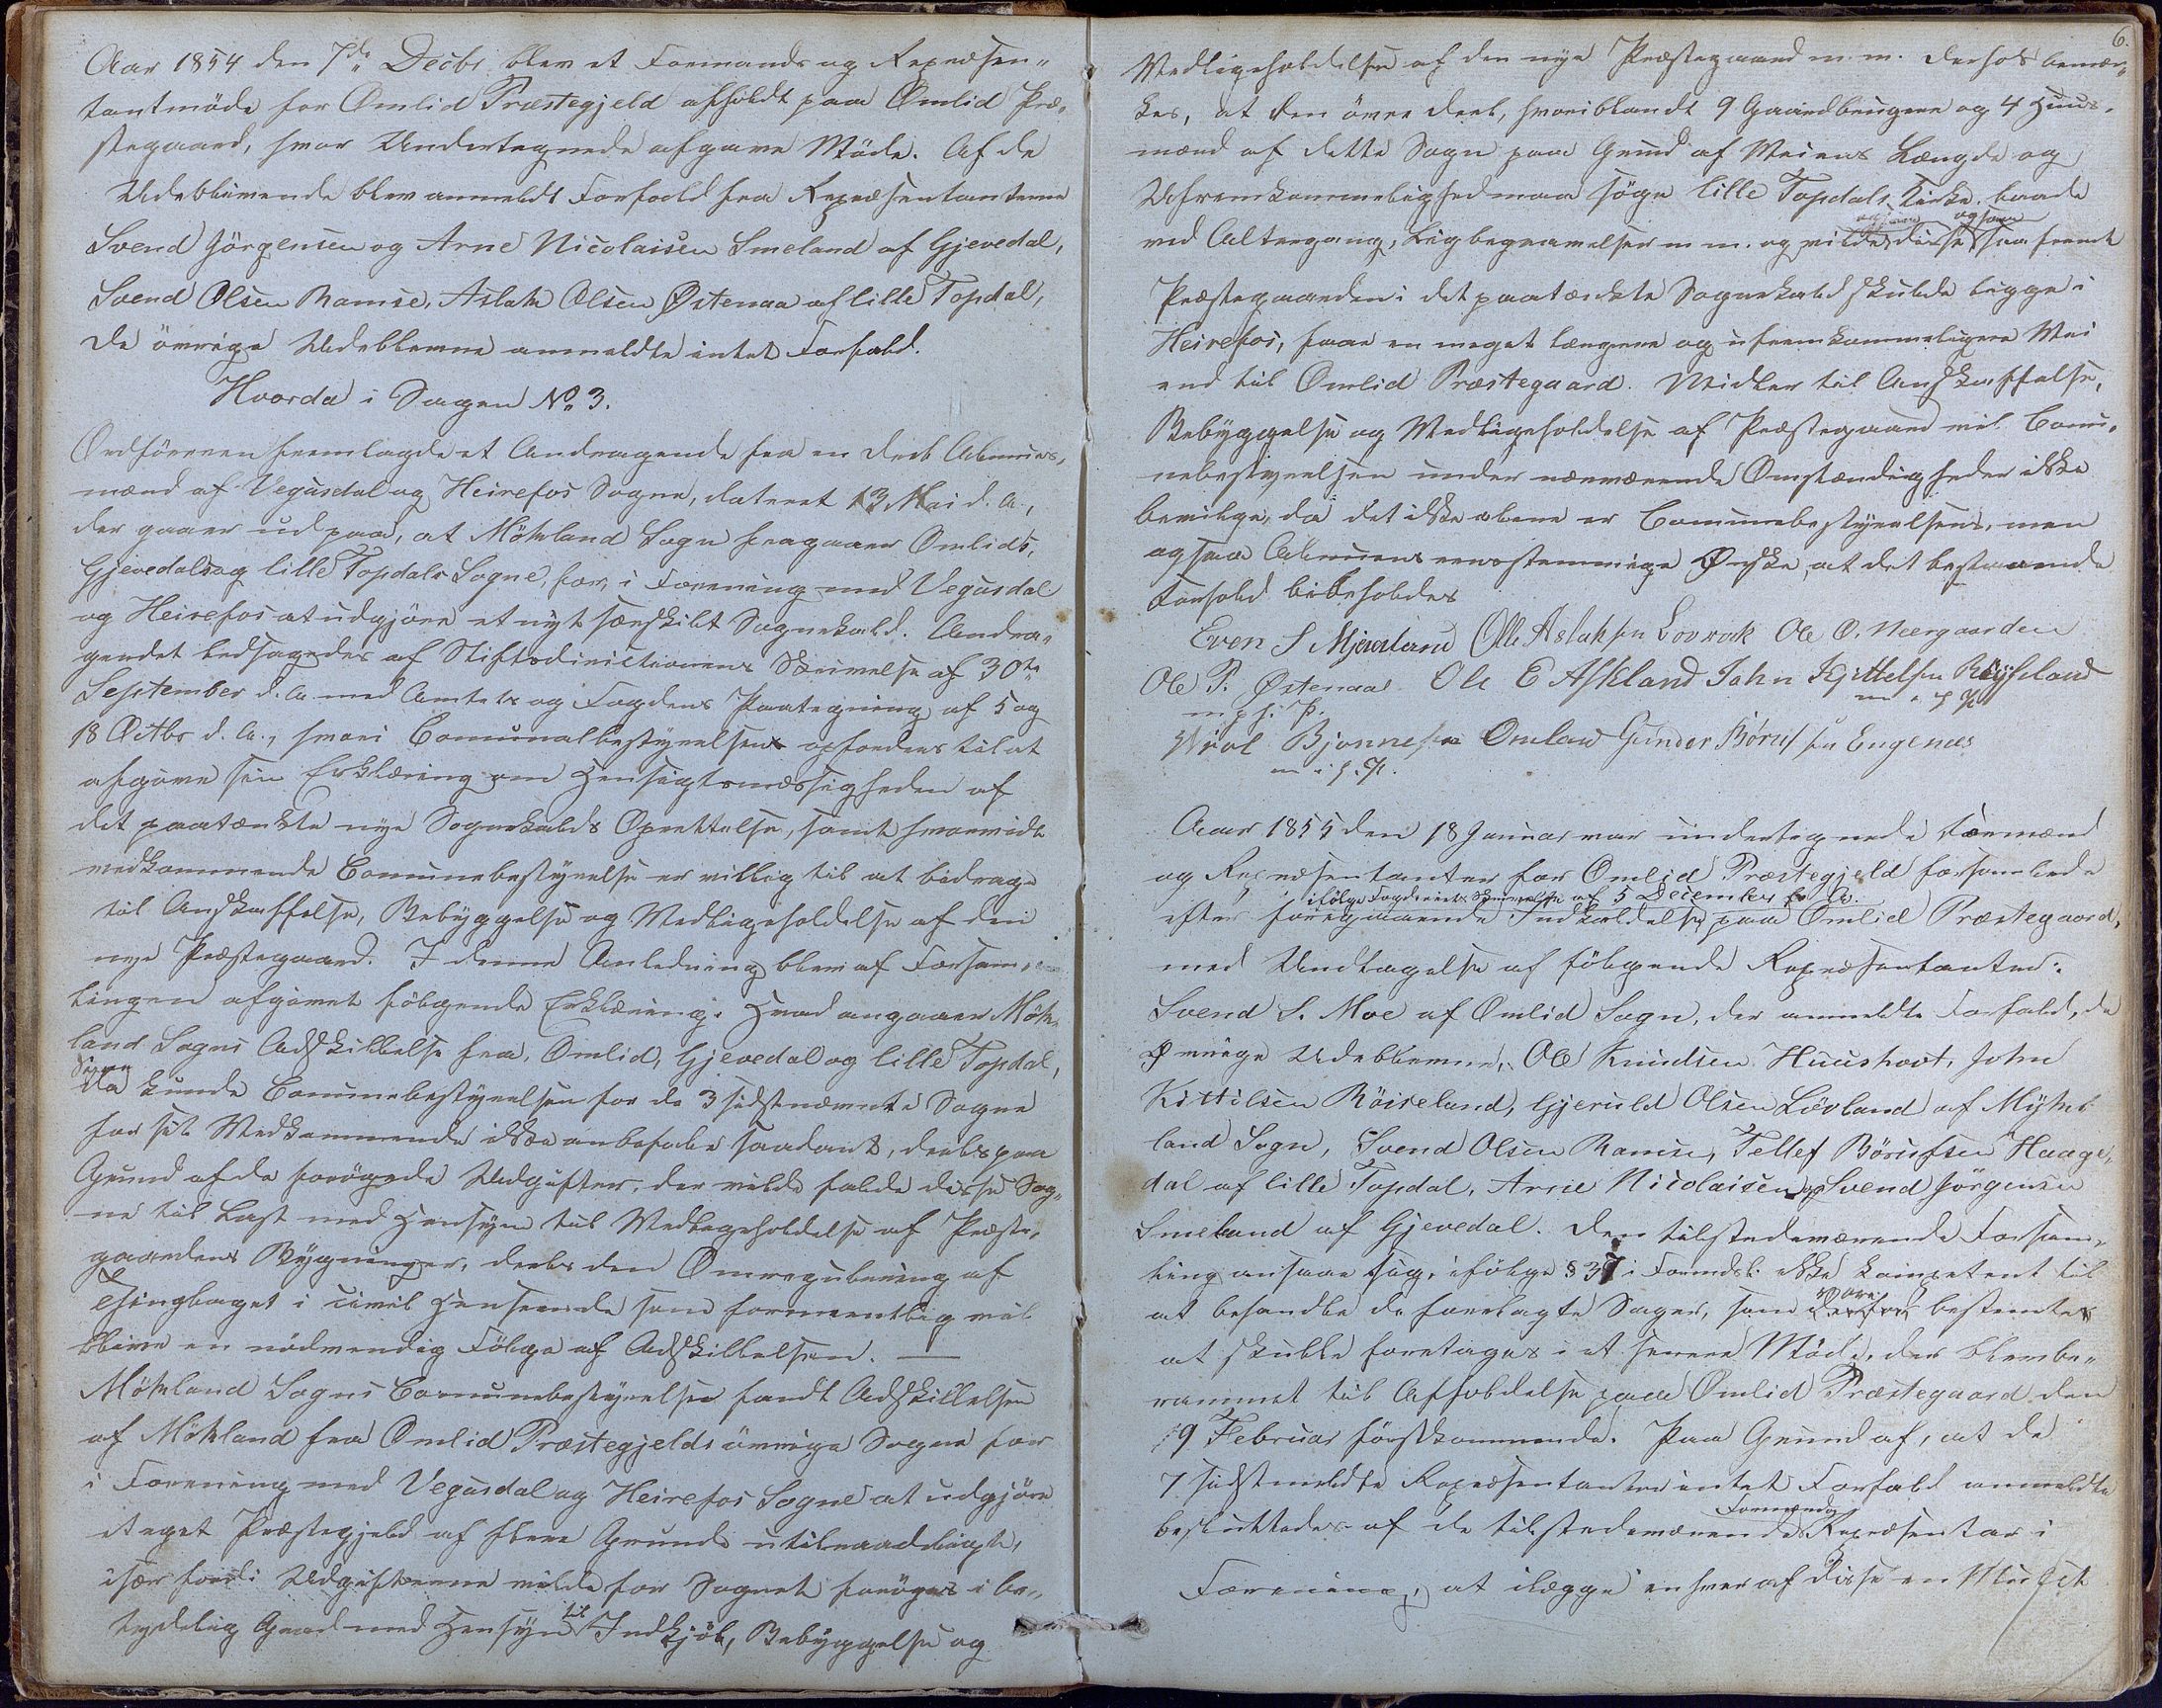 Aar 1854 den 7de Decbr blev et Formands og Repræsen-
tantmöde for Omlid Præstegjeld afholdt paa Omlid Præ-
stegaard, hvor Undertegnede afgave Möde. Af de
Udeblivende blev anmeldt Forfald fra Repræsentanterne
Svend Jörgensen og Arne Nicolaisen Smeland af Gjevedal,
Svend Olsen Ramse, Aslak Olsen Østenaa af lille Topdal,
de övrige Udeblevne anmeldte intet Forfald.
Hvorda i Sagen No 3.
Ordföreren fremlagde et Andragende fra en Deel Almues-
mænd af Vegusdal og Heirefos Sogne, dateret 13 Mai d. A.,
der gaaer ud paa, at Mökland Sogn fragaaer Omlids,
Gjevedals og lille Topdals Sogne, for, i Forening med Vegusdal
og Heirefos at udgjöre et nyt særskilt Sognekald. Andra-
gendet ledsagedes af Stiftsdirectionens Skrivelse af 30te
September d. A. med Amtets og Fogdens Paategning af 5 og
18 Octbr d. A., hvori Comunalbestyrelsen opfordres til at
afgive sin Erklæring om Hensigtsmæssigheden af
det paatænkte nye Sognekalds Oprettelse, samt hvorvidt
vedkommende Comunebestyrelse er villig til at bidrage
til Anskaffelse, Bebyggelse og Vedligeholdelse af den
nye Præstegaard. I denne Anledning blev af Forsam-
lingen afgivet fölgende Erklæring: Hvad angaaer Mök-
land Sogns Adskillelse fra Omlid, Gjevedal og lille Topdal,
Sogne
da kunde Comunebestyrelsen for de 3 sidstnævnte Sogne
for sit Vedkommende ikke anbefale saadant, deels paa
Grund af de forögede Udgifter, der vilde falde disse Sog-
ne til Last med Hensyn til Vedligeholdelse af Præste-
gaardens Bygninger, deels den Omregulering af
Thinglaget i civil Henseende som formeentlig vil
blive en nödvendig Fölge af Adskillelsen. —
Mökland Sogns Comunebestyrelse fandt Adskillelsen
af Mökland fra Omlid Præstegjelds övrige Sogne for
i Forening med Vegusdal og Heirefos Sogne at udgjöre
et eget Præstegjeld af flere Grunde utilraadeligt,
især fordi Udgifterne vilde for Sognet foröges i be-
tydelig Grad med Hensyn til Indkjöb, Bebyggelse og
6.
Vedligeholdelse af den nye Præstegaard m. m. derhos bemær-
kes, at den övre Deel, hvoriblandt 9 Gaardbrugere og 4 Huus-
mænd af dette Sogn paa Grund af Veiens Længde og
Ufremkommelighed maa söge lille Topdals Kirke, baade
ogsaa
ved Altergang, Ligbegravelser m m. og vilde disse saafremt
Præstegaarden i det paatænkte Sognekald skulde ligge i
Heirefos, faae en meget længere og ufremkommeligere Vei
end til Omlid Præstegaard. Midler til Anskaffelse,
Bebyggelse og Vedligeholdelse af Præstegaard vil Comu-
nebestyrelsen under nærværende Omstændigheder ikke
bevilge, da det ikke alene er Comunebestyrelsens, men
ogsaa Almuens eenstemmige Ønske, at det bestaaende
Forhold bibeholdes
Even S Mjaaland Olle Aslaksen Lovrak Ole O. Neergaarden
Ole P. Østenaae Ole E Askland John Kjittelsen Röyseland
m p. f. P.
Bjonnesen Omland Gunder Börufsen Eugenæs
Aar 1855 den 18 Januar var undertegnede Formænd
og Repræsentanter for Omlid Præstegjeld forsamlede
ifölge Fogderiets Skrivelse af 5 December f. A.
efter foregaaende Indkaldelse paa Omlid Præstegaard,
med Undtagelse af fölgende Repræsentanter:
Svend S. Moe af Omlid Sogn, der anmeldte Forfald, de
Ovrige Udeblevne, Ole Knudsen Huushovt, John
Kittilsen Röiseland, Gjeruld Olsen Lövland af Mykl
land Sogn, Svend Olsen Ramse, Tellef Börufsen Haage-
dal af lille Topdal, Arne Nicolaisen og Svend Jörgensen
Smeland af Gjevedal. Den tilstedeværende Forsam-
ling ansaae sig, ifölge § 37 i Formdsl. ikke kompetent til
at behandle de forelagte Sager, som bestemtes
at skulle foretages i et senere Möde, der blev be-
rammet til Afholdelse paa Omlid Præstegaard den
19 Februar förstkommende. Paa Grund af, at de
7 sidstmeldte Repræsentanter intet Forfald anmeldte
Formænd og
besluttedes af de tilstedeværende Repræsentar i
Forening, at ilægge enhver af disse en Mulct